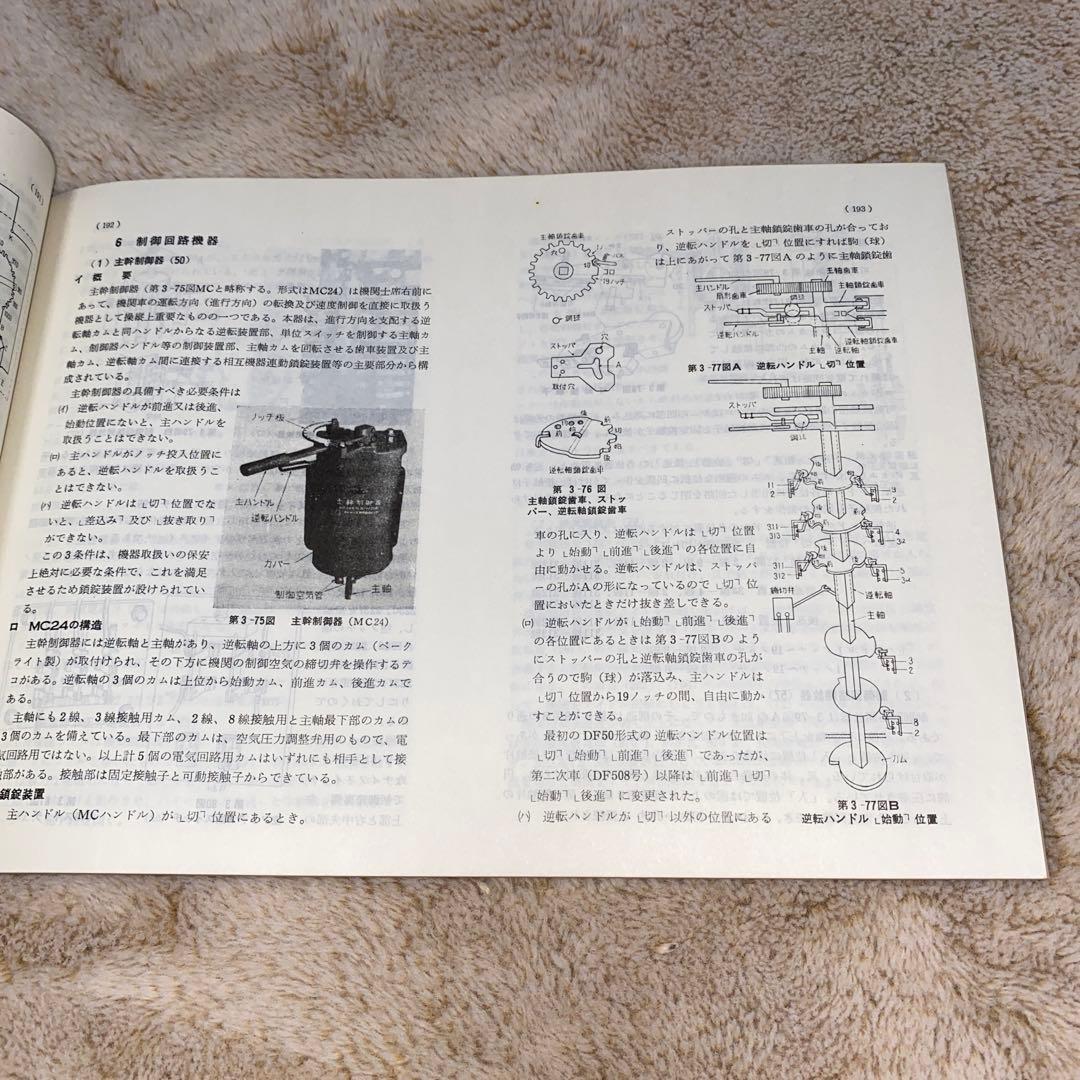 (192)
6 制御回路機器
(1) 主幹制御器(50)
イ 概 要
主幹制御器(第3-75図MCと略称する。形式はMC24)は機関士席右前に
あって、機関車の運転方向(進行方向)の転換及び速度制御を直接に取扱う
機器として操縦上重要なものの一つである。本器は、進行方向を支配する逆
転軸カムと同ハンドルからなる逆転装置部、単位スイッチを制御する主軸カ
ム、制御器ハンドル等の制御装置部、主軸カムを回転させる歯車装置及び主
軸カム、逆転軸カム間に連接する相互機器連動鎖錠装置等の主要部分から構
成されている。
主幹制御器の具備すべき必要条件は
(イ) 逆転ハンドルが前進又は後進、
始動位置にないと、主ハンドルを
取扱うことはできない。
(ロ) 主ハンドルがノッチ投入位置に
あると、逆転ハンドルを取扱うこ
とはできない。
(ハ) 逆転ハンドルは﹂切﹁位置でな
いと、﹂差込み﹁及び﹂抜き取り﹁
ができない。
この3条件は、機器取扱いの保安
上絶対に必要な条件で、これを満足
させるため鎖錠装置が設けられてい
る。
ノッチ板
主幹制御器
主ハンドル
逆転ハンドル
カバー
制御空気管
主軸
第3-75図 主幹制御器(MC24)
ロ MC24の構造
主幹制御器には逆転軸と主軸があり、逆転軸の上方に3個のカム(ベーク
ライト製)が取付けられ、その下方に機関の制御空気の締切弁を操作するテ
コがある。逆転軸の3個のカムは上位から始動カム、前進カム、後進カムで
ある。
主軸にも2線、3線接触用カム、2線、8線接触用と主軸最下部のカムの
3個のカムを備えている。最下部のカムは、空気圧力調整弁用のもので、電
気回路用ではない。以上計5個の電気回路用カムはいずれにも相手として接
触部がある。接触部は固定接触子と可動接触子からできている。
鎖錠装置
主ハンドル(MCハンドル)が﹂切﹁位置にあるとき。
(193)
主軸鎖錠歯車
穴
切
バネ
コロ
19ノッチ
鋼球
ストッパ
穴
A
取付穴
逆転軸鎖錠歯車
第3-76図
主軸鎖錠歯車、ストッ
パー、逆転軸鎖錠歯車
ストッパーの孔と主軸鎖錠歯車の孔が合ってお
り、逆転ハンドルを﹂切﹁位置にすれば駒(球)
は上にあがって第3-77図Aのように主軸鎖錠歯
主ハンドル
主軸歯車
扇形歯車
鋼球
主軸鎖錠歯車
ストッパ
逆転ハンドル
主軸
逆転軸
逆転軸鎖錠歯車
第3-77図A 逆転ハンドル﹂切﹁位置
車の孔に入り、逆転ハンドルは﹂切﹁位置
より﹂始動﹁﹂前進﹁﹂後進﹁の各位置に自
由に動かせる。逆転ハンドルは、ストッパ
ーの孔がAの形になっているので﹂切﹁位
置においたときだけ抜き差しできる。
(ロ) 逆転ハンドルが﹂始動﹁﹂前進﹁﹂後進﹁
の各位置にあるときは第3-77図Bのよう
にストッパーの孔と逆転軸鎖錠歯車の孔が
合うので駒(球)が落込み、主ハンドルは
﹂切﹁位置から19ノッチの間、自由に動か
すことができる。
最初のDF50形式の逆転ハンドル位置は
﹂切﹁﹂始動﹁﹂前進﹁﹂後進﹁であったが、
第二次車(DF508号)以降は﹂前進﹁﹂切﹁
﹂始動﹁﹂後進﹁に変更された。
(ハ) 逆転ハンドルが﹂切﹁以外の位置にある
ストッパ
鋼球
11
2
9
2
311
313
4
311
312
5
締切弁
逆転軸
主軸
3
2
8
2
カム
第3-77図B
逆転ハンドル﹂始動﹁位置